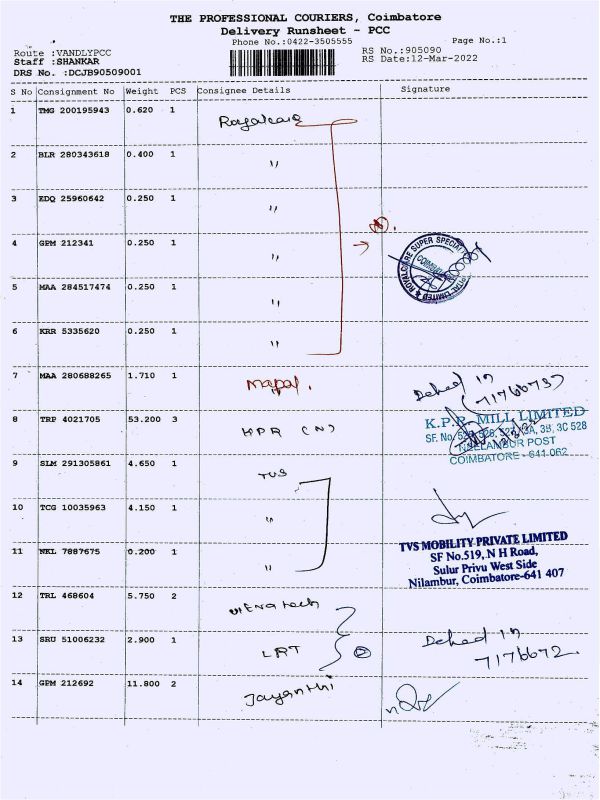 THE PROFESSIONAL COURIERS, Coimbatore
Delivery Runsheet - PCC
Phone No.:0422-3505555 Page No.:1
Route :VANDLYPCC RS No.:905090
Staff :SHANKAR RS Date:12-Mar-2022
DRS No. :DCJB90509001
S No Consignment No Weight PCS Consignee Details Signature
1 TMG 200195943 0.620 1 Royalcare
2 BLR 280343618 0.400 1 "
3 EDQ 25960642 0.250 1 "
4 GPM 212341 0.250 1 "
ROYALCARE SUPER SPECIALITY
5 MAA 284517474 0.250 1 "
6 KRR 5335620 0.250 1 "
7 MAA 280688265 1.710 1 Mapal.
8 TRP 4021705 53.200 3 KPR (N)
K.P.R. MILL LIMITED
SF. No. 3B, 3C 528
NEELAMBUR POST
COIMBATORE - 641 062
9 SLM 291305861 4.650 1 TVS
10 TCG 10035963 4.150 1 "
11 NKL 7887675 0.200 1 "
TVS MOBILITY PRIVATE LIMITED
SF No.519, N H Road,
Sulur Privu West Side
Nilambur, Coimbatore-641 407
12 TRL 468604 5.750 2
13 SRU 51006232 2.900 1 LRT
7176672
14 GPM 212692 11.800 2 Jayanthi